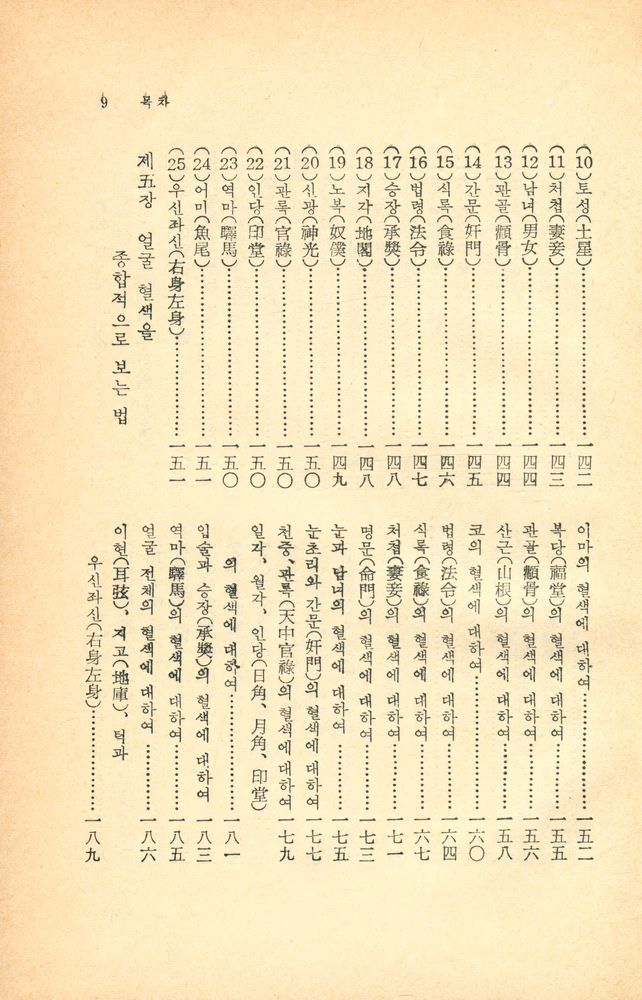 9 목차
(10) 토성(土星)……………一四二
(11) 처첩(妻妾)……………一四三
(12) 남녀(男女)……………一四四
(13) 관골(顴骨)……………一四四
(14) 간문(奸門)……………一四五
(15) 식록(食祿)……………一四六
(16) 법령(法令)……………一四七
(17) 승장(承奬)……………一四八
(18) 지각(地閣)……………一四八
(19) 노복(奴僕)……………一四九
(20) 신광(神光)……………一五〇
(21) 관록(官祿)……………一五〇
(22) 인당(印堂)……………一五〇
(23) 역마(驛馬)……………一五〇
(24) 어미(魚尾)……………一五一
(25) 우신좌신(右身左身)……………一五一
제五장 얼굴 혈색을
종합적으로 보는 법
이마의 혈색에 대하여……………一五二
복당(福堂)의 혈색에 대하여……………一五五
관골(顴骨)의 혈색에 대하여……………一五六
산근(山根)의 혈색에 대하여……………一五八
코의 혈색에 대하여……………一六〇
법령(法令)의 혈색에 대하여……………一六四
식록(食祿)의 혈색에 대하여……………一六七
처첩(妻妾)의 혈색에 대하여……………一七一
명문(命門)의 혈색에 대하여……………一七三
눈과 남녀의 혈색에 대하여……………一七五
눈초리와 간문(奸門)의 혈색에 대하여 一七七
천중、관록(天中官祿)의 혈색에 대하여 一七九
일각、월각、인당(日角、月角、印堂)
의 혈색에 대하여……………一八一
입술과 승장(承奬)의 혈색에 대하여 一八三
역마(驛馬)의 혈색에 대하여……………一八五
얼굴 전체의 혈색에 대하여……………一八六
이현(耳弦)、지고(地庫)、턱과
우신좌신(右身左身)……………一八九